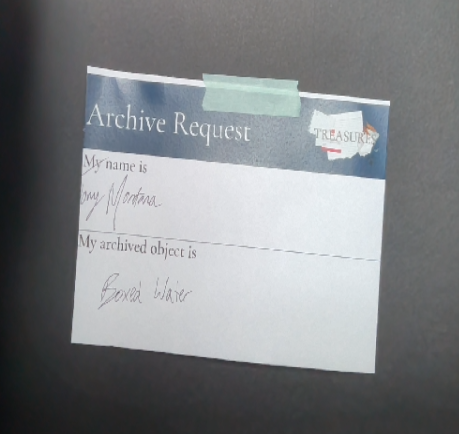 Archive Request
TREASURES
My name is
Tony Montana
My archived object is
Boxed Water